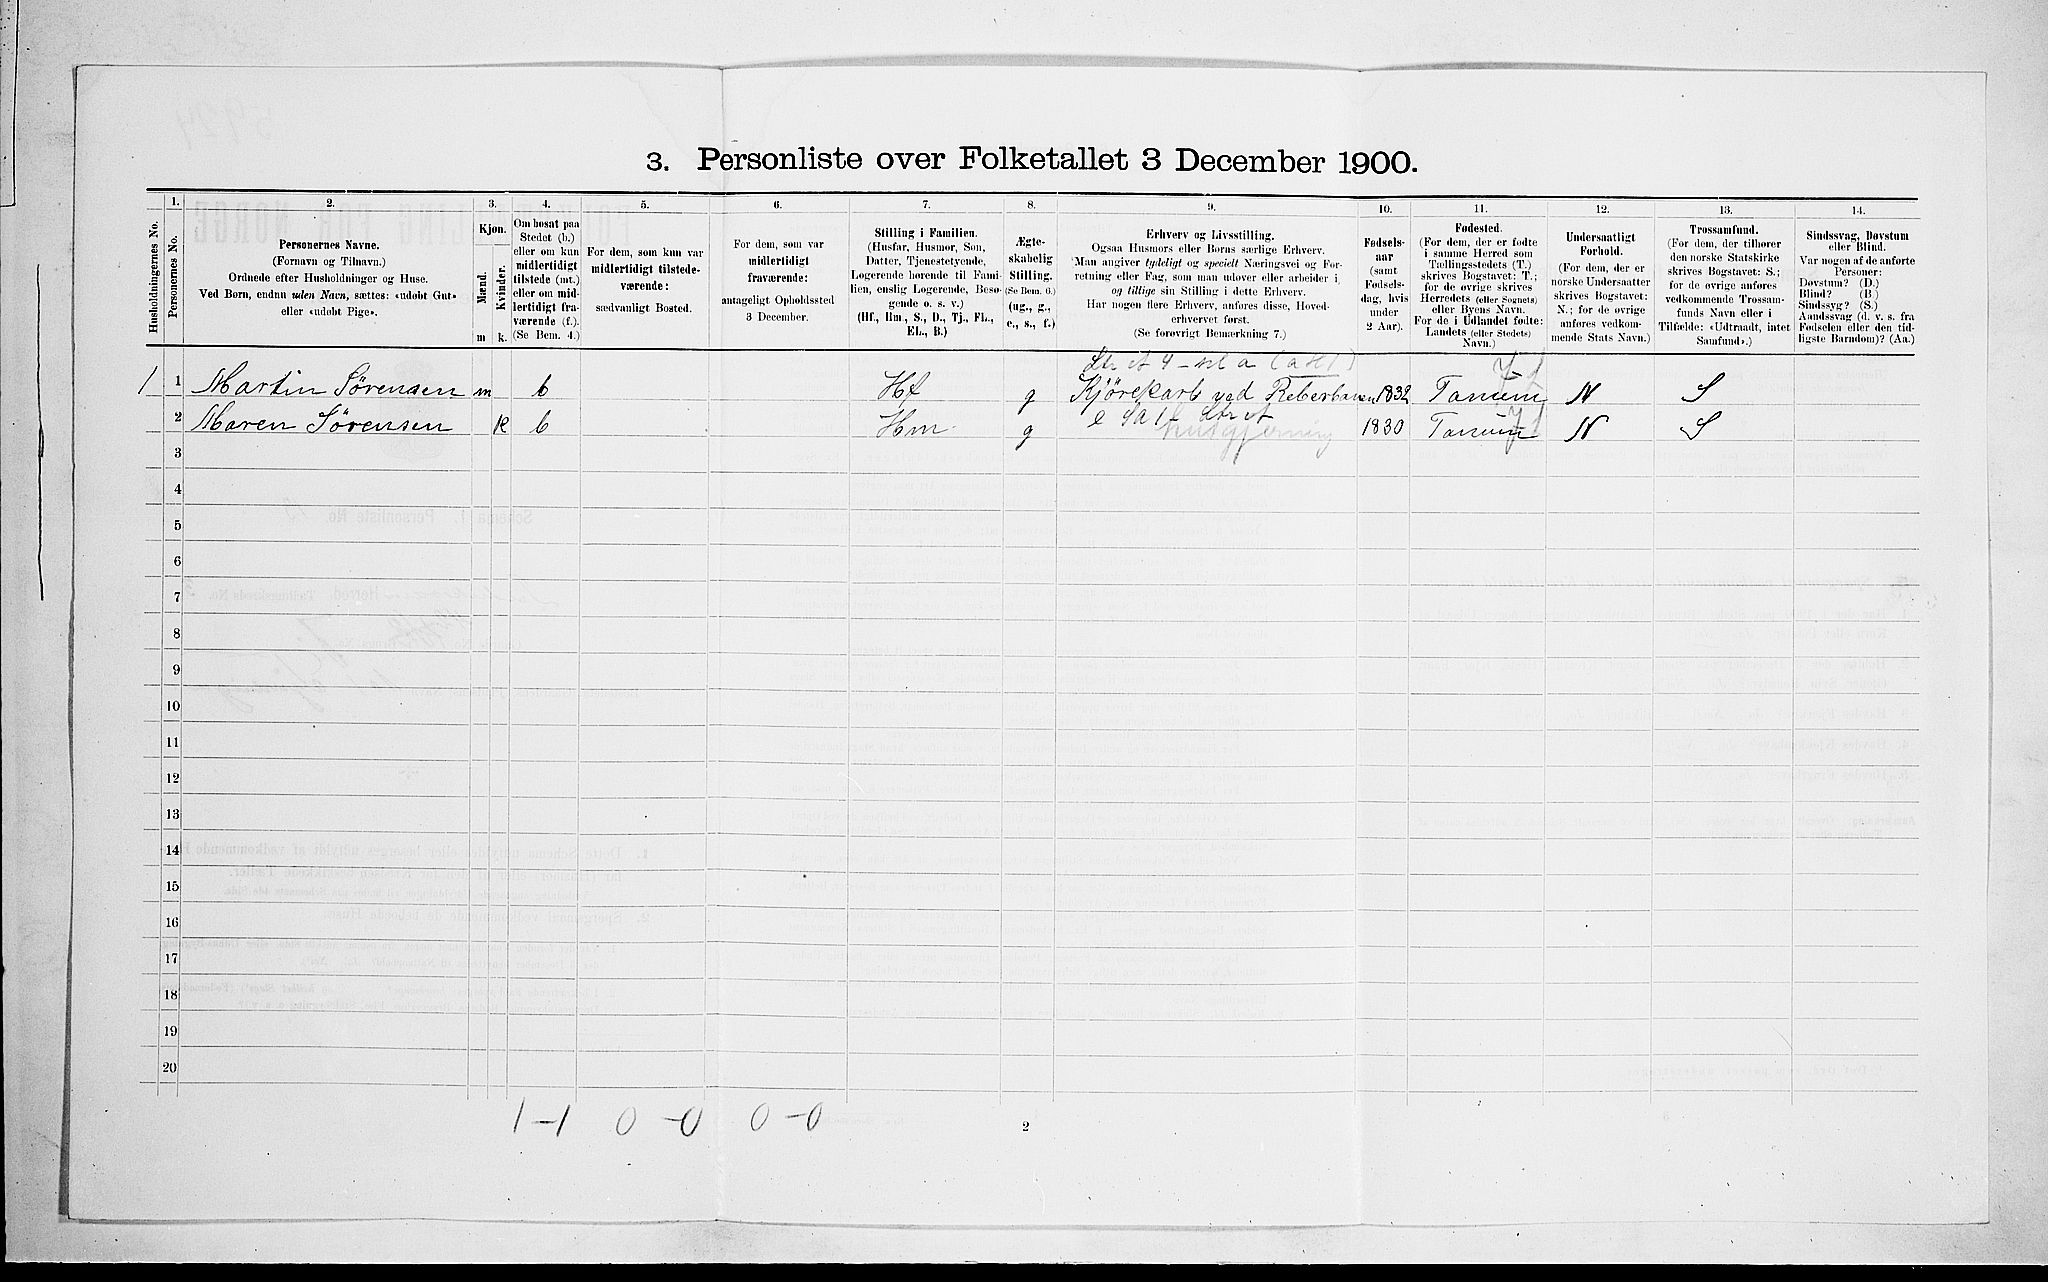 3. Personliste over Folketallet 3 December 1900.
1. 2. 3. 4. 5. 6. 7. 8. 9. 10. 11. 12. 13. 14.
Husholdningernes No.
Personernes No.
Personernes Navne.
(Fornavn og Tilnavn.)
Ordnede efter Husholdninger og Huse.
Ved Børn, endnu uden Navn, sættes: «udøbt Gut»
eller «udøbt Pige».
Kjøn.
Mænd.
Kvinder.
m k.
Om bosat paa
Stedet (b.)
eller om kun
midlertidigt
tilstede (mt.)
eller om mid-
lertidigt fra-
værende (f.).
(Se Bem. 4.)
For dem, som kun var
midlertidigt tilstede-
værende:
sædvanligt Bosted.
For dem, som var
midlertidigt
fraværende:
antageligt Opholdssted
3 December.
Stilling i Familien.
(Husfar, Husmor, Søn,
Datter, Tjenestetyende,
Logerende hørende til Fami-
lien, enslig Logerende, Besø-
gende o. s. v.)
(Hf., Hm., S., D., Tj., FL.,
EL., B.)
Ægte-
skabelig
Stilling.
(Se Bem. 6.)
(ug., g.,
e., s., f.)
Erhverv og Livsstilling.
Ogsaa Husmors eller Børns særlige Erhverv.
Man angiver tydeligt og specielt Næringsvei og For-
retning eller Fag, som man udøver eller arbeider i,
og tillige sin Stilling i dette Erhverv.
Har nogen flere Erhverv, anføres disse, Hoved-
erhvervet først.
(Se forøvrigt Bemærkning 7.)
Fødsels-
aar
(samt
Fødsels-
dag, hvis
under
2 Aar).
Fødested.
(For dem, der er fødte
i samme Herred som
Tællingsstedets (T.)
skrives Bogstavet: T.;
for de øvrige skrives
Herredets (eller Sognets)
eller Byens Navn.
For de i Udlandet fødte:
Landets (eller Stedets)
Navn.)
Undersaatligt
Forhold.
(For dem, der er
norske Undersaatter
skrives Bogstavet:
N.; for de øvrige
anføres vedkom-
mende Stats Navn.)
Trossamfund.
(For dem, der tilhører
den norske Statskirke
skrives Bogstavet: S.;
for de øvrige anføres
vedkommende Trossam-
funds Navn eller i
Tilfælde: «Udtraadt, intet
Samfund».)
Sindssvag, Døvstum
eller Blind.
Var nogen af de anførte
Personer:
Døvstum? (D.)
Blind? (B.)
Sindssyg? (S.)
Aandssvag (d. v. s. fra
Fødselen eller den tid-
ligste Barndom)? (Aa.)
1 1 Martin Sørensen m b Hf g Kjørekarl ved Reberbanen 1832 Tanum N S
2 Maren Sørensen k b Hm g 1830 Tanum N S
3
4
5
6
7
8
9
10
11
12
13
14
15
16
17
18
19
20
1-1 0-0 0-0
2